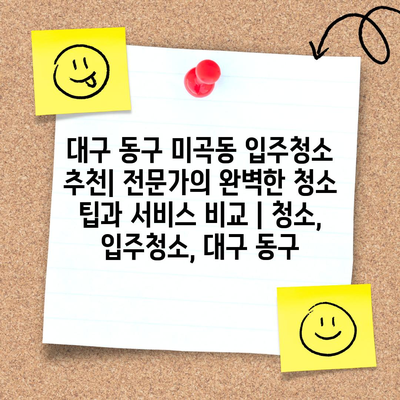 대구 동구 미곡동 입주청소
추천| 전문가의 완벽한 청소
팁과 서비스 비교 | 청소,
입주청소, 대구 동구